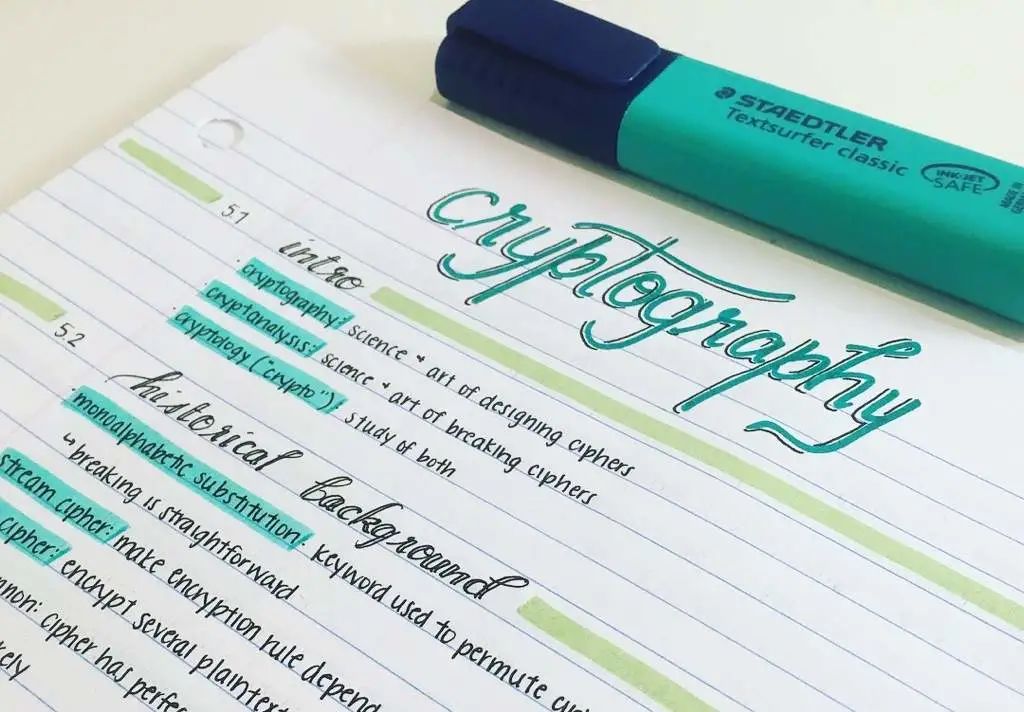 STAEDTLER
Textsurfer classic
INK-JET
SAFE
MADE IN
cryptography
5.1
intro
· cryptography: science + art of designing ciphers
· cryptanalysis: science + art of breaking ciphers
· cryptology ("crypto"): study of both
5.2
historical background
· monoalphabetic substitution: keyword used to permute
↳ breaking is straightforward
stream cipher: make encryption rule depend
cipher: encrypt several plaintext
cipher has perfe